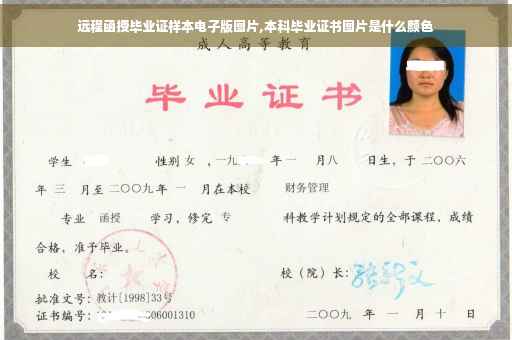 远程函授毕业证样本电子版图片,本科毕业证书图片是什么颜色
成人高等教育
毕业证书
学生 性别 女 ,一九 年一 月八 日生，于二〇〇六
年 三 月至二〇〇九年 一 月在本校 财务管理
专业 函授 学习，修完 专 科教学计划规定的全部课程，成绩
合格，准予毕业。
校 名： 校（院）长：
批准文号：教计[1998]33号
证书编号： 06001310 二〇〇九 年 一 月 十 日